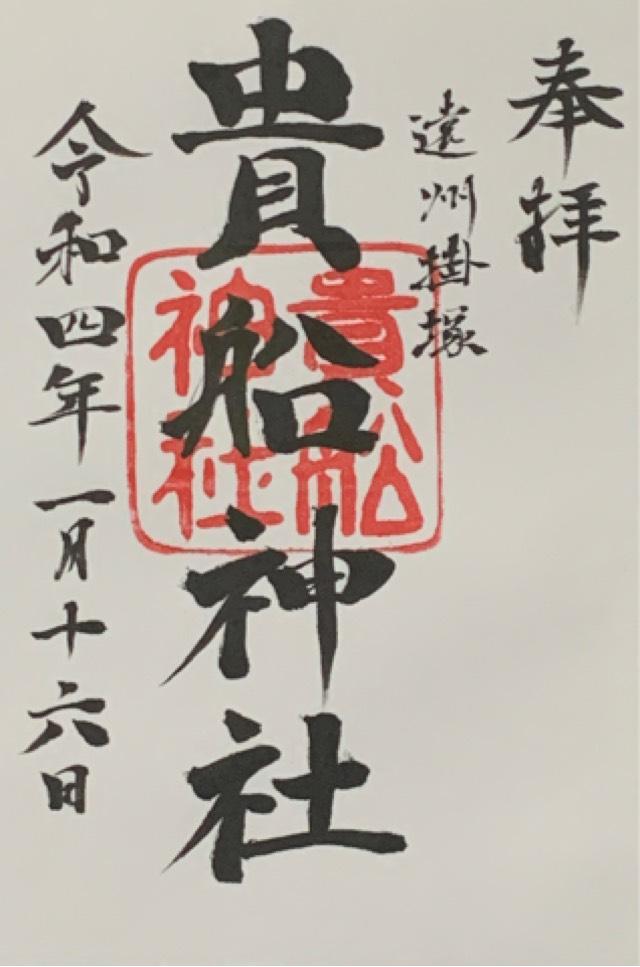 奉拝
遠州掛塚
貴船神社
貴船
神社
令和四年一月十六日